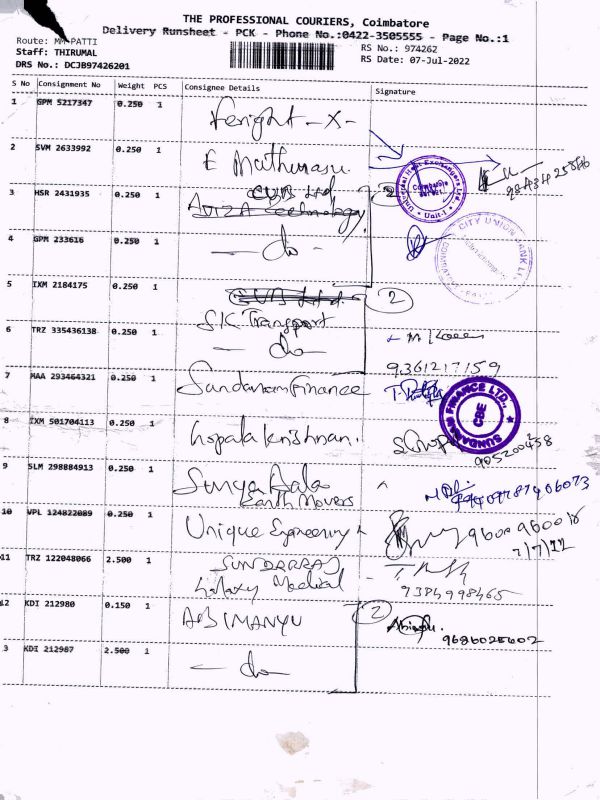 THE PROFESSIONAL COURIERS, Coimbatore
Delivery Runsheet - PCK - Phone No.:0422-3505555 - Page No.:1
Route: MM-PATTI
Staff: THIRUMAL
DRS No.: DCJB97426201
RS No.: 974262
RS Date: 07-Jul-2022
S No Consignment No Weight PCS Consignee Details Signature
1 GPM 5217347 0.250 1
2 SVM 2633992 0.250 1
Universal Heat Exchangers Ltd. Unit-I
3 HSR 2431935 0.250 1 CUB Ltd 2
CITY UNION BANK LTD
4 GPM 233616 0.250 1 - do -
5 IXM 2184175 0.250 1 CUB Ltd. 2
SK Transport
6 TRZ 335436138 0.250 1 - do -
9361217159
7 MAA 293464321 0.250 1 Sundaram Finance
SUNDARAM FINANCE LTD., CBE
8 IXM 501704113 0.250 1 Gopala Krishnan.
9 SLM 298884913 0.250 1 Surya Bala
Earth Movers
10 VPL 124822089 0.250 1 Unique Engineering
7/7/22
11 TRZ 122048066 2.500 1 SUNDARRAJ
Galaxy Medical
9384998465
12 KDI 212980 0.150 1 ABIMANYU 2
9686025602
3 KDI 212987 2.500 1 - do -